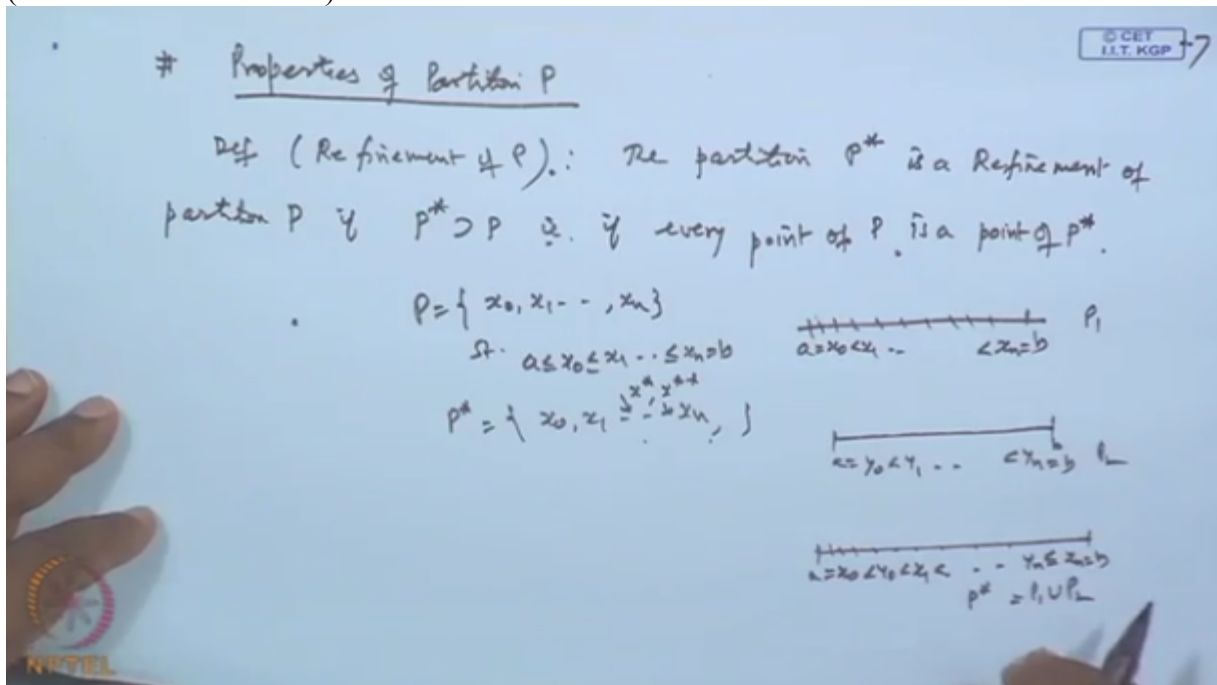 © CET
I.I.T. KGP
-7
# Properties of Partition P
Def (Refinement of P).: The partition P* is a Refinement of
partition P if P* ⊃ P ie. if every point of P is a point of P*.
P = { x₀, x₁ - - , xₙ}
St. a ≤ x₀ ≤ x₁ - - ≤ xₙ = b
x*, x**
P* = { x₀, x₁ - - xₙ, }
P₁
a = x₀ < x₁ - - < xₙ = b
b
a = y₀ < y₁ - - < yₙ = b P₂
a = x₀ < y₀ < x₁ < - - yₙ ≤ xₙ = b
P* = P₁ ∪ P₂
NPTEL